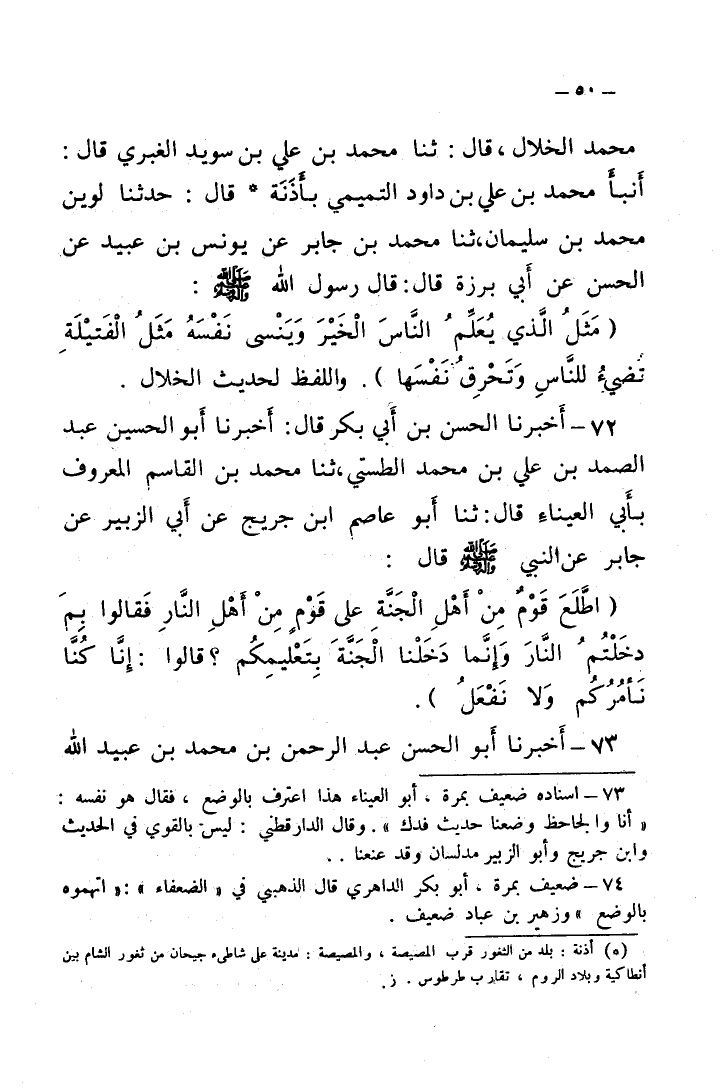 — ٥٠ —
محمد الخلال ، قال : ثنا محمد بن علي بن سويد الغبري قال :
أَنبأَ محمد بن علي بن داود التميمي بأَذَنَة * قال : حدثنا لوين
محمد بن سليمان، ثنا محمد بن جابر عن يونس بن عبيد عن
الحسن عن أَبي برزة قال : قال رسول الله ﷺ :
( مَثَلُ الَّذي يُعَلِّمُ النَّاسَ الْخَيْرَ وَيَنْسى نَفْسَهُ مَثَلُ الْفَتيْلَةِ
تُضيءُ للنَّاسِ وَتَحْرِقُ نَفْسَها ) . واللفظ لحديث الخلال .
٧٢ – أَخبرنا الحسن بن أَبي بكر قال : أَخبرنا أَبو الحسين عبد
الصمد بن علي بن محمد الطستي، ثنا محمد بن القاسم المعروف
بأَبي العيناءِ قال : ثنا أَبو عاصم ابن جريج عن أَبي الزبير عن
جابر عن النبي ﷺ قال :
( اطَّلَعَ قَوْمٌ مِنْ أَهْلِ الْجَنَّةِ على قَوْمٍ مِنْ أَهْلِ النَّارِ فَقالوا بِمَ
دخَلْتُمُ النَّارَ وَإِنَّما دَخَلْنا الْجَنَّةَ بِتَعْليمِكُم ؟ قالوا : إِنَّا كُنَّا
نَأْمُرُكُم وَلا نَفْعَلُ ) .
٧٣ – أَخبرنا أَبو الحسن عبد الرحمن بن محمد بن عبيد الله
٧٣ – اسناده ضعيف بمرة ، أبو العيناء هذا اعترف بالوضع ، فقال هو نفسه :
« أنا والجاحظ وضعنا حديث فدك » . وقال الدارقطني : ليس بالقوي في الحديث
وابن جريج وأبو الزبير مدلسان وقد عنعنا . .
٧٤ – ضعيف بمرة ، أبو بكر الداهري قال الذهبي في « الضعفاء » : « اتهموه
بالوضع » وزهير بن عباد ضعيف .
(٥) أذنة : بلد من الثغور قرب المصيصة ، والمصيصة : مدينة على شاطىء جيحان من ثغور الشام بين
أنطاكية وبلاد الروم ، تقارب طرطوس . ز .